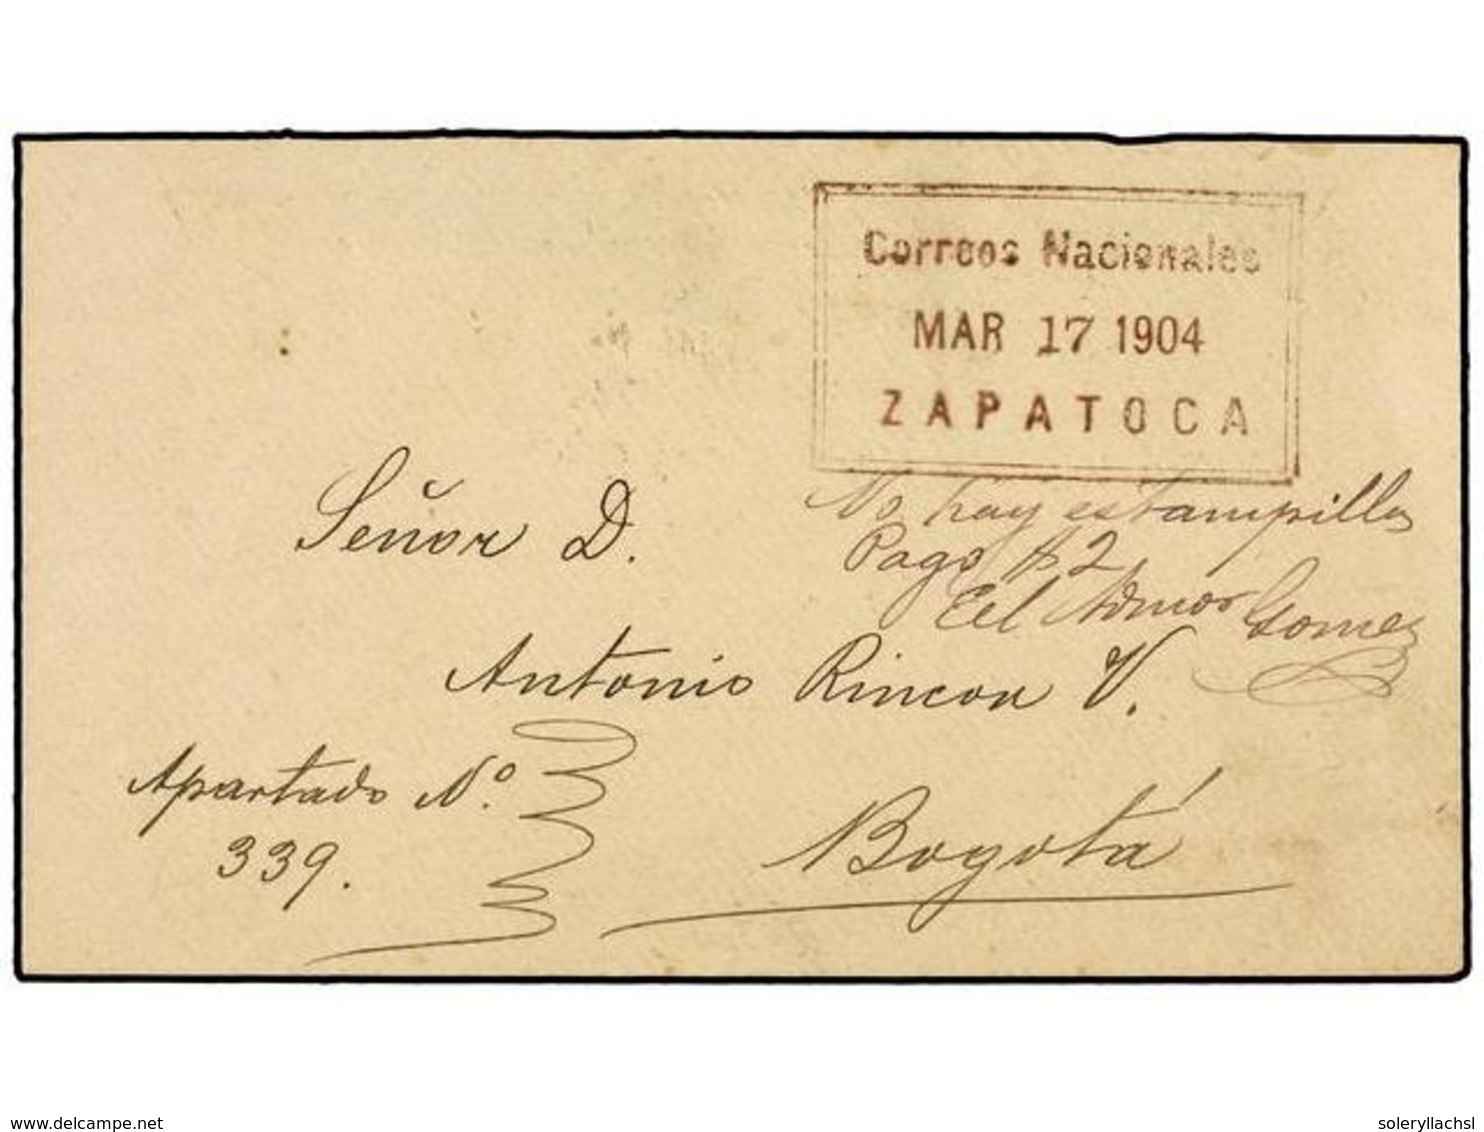 Correos Nacionales
MAR 17 1904
ZAPATOCA
No hay estampillas
Pago $2
El Admor Gomez
Señor D.
Antonio Rincon V.
Apartado No.
339.
Bogotá
www.delcampe.net
soleryllachsl